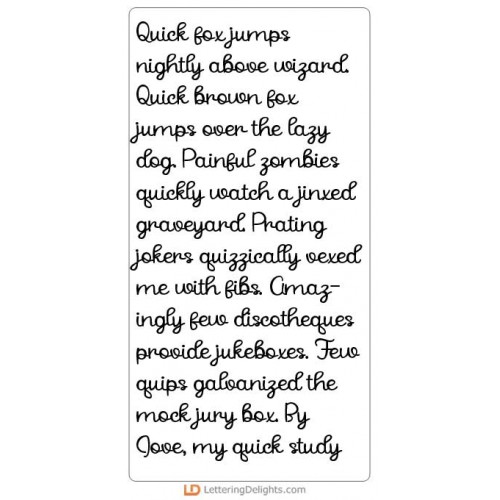 Quick fox jumps
nightly above wizard.
Quick brown fox
jumps over the lazy
dog. Painful zombies
quickly watch a jinxed
graveyard. Prating
jokers quizzically vexed
me with fibs. Amaz-
ingly few discotheques
provide jukeboxes. Few
quips galvanized the
mock jury box. By
Jove, my quick study
LD LetteringDelights.com